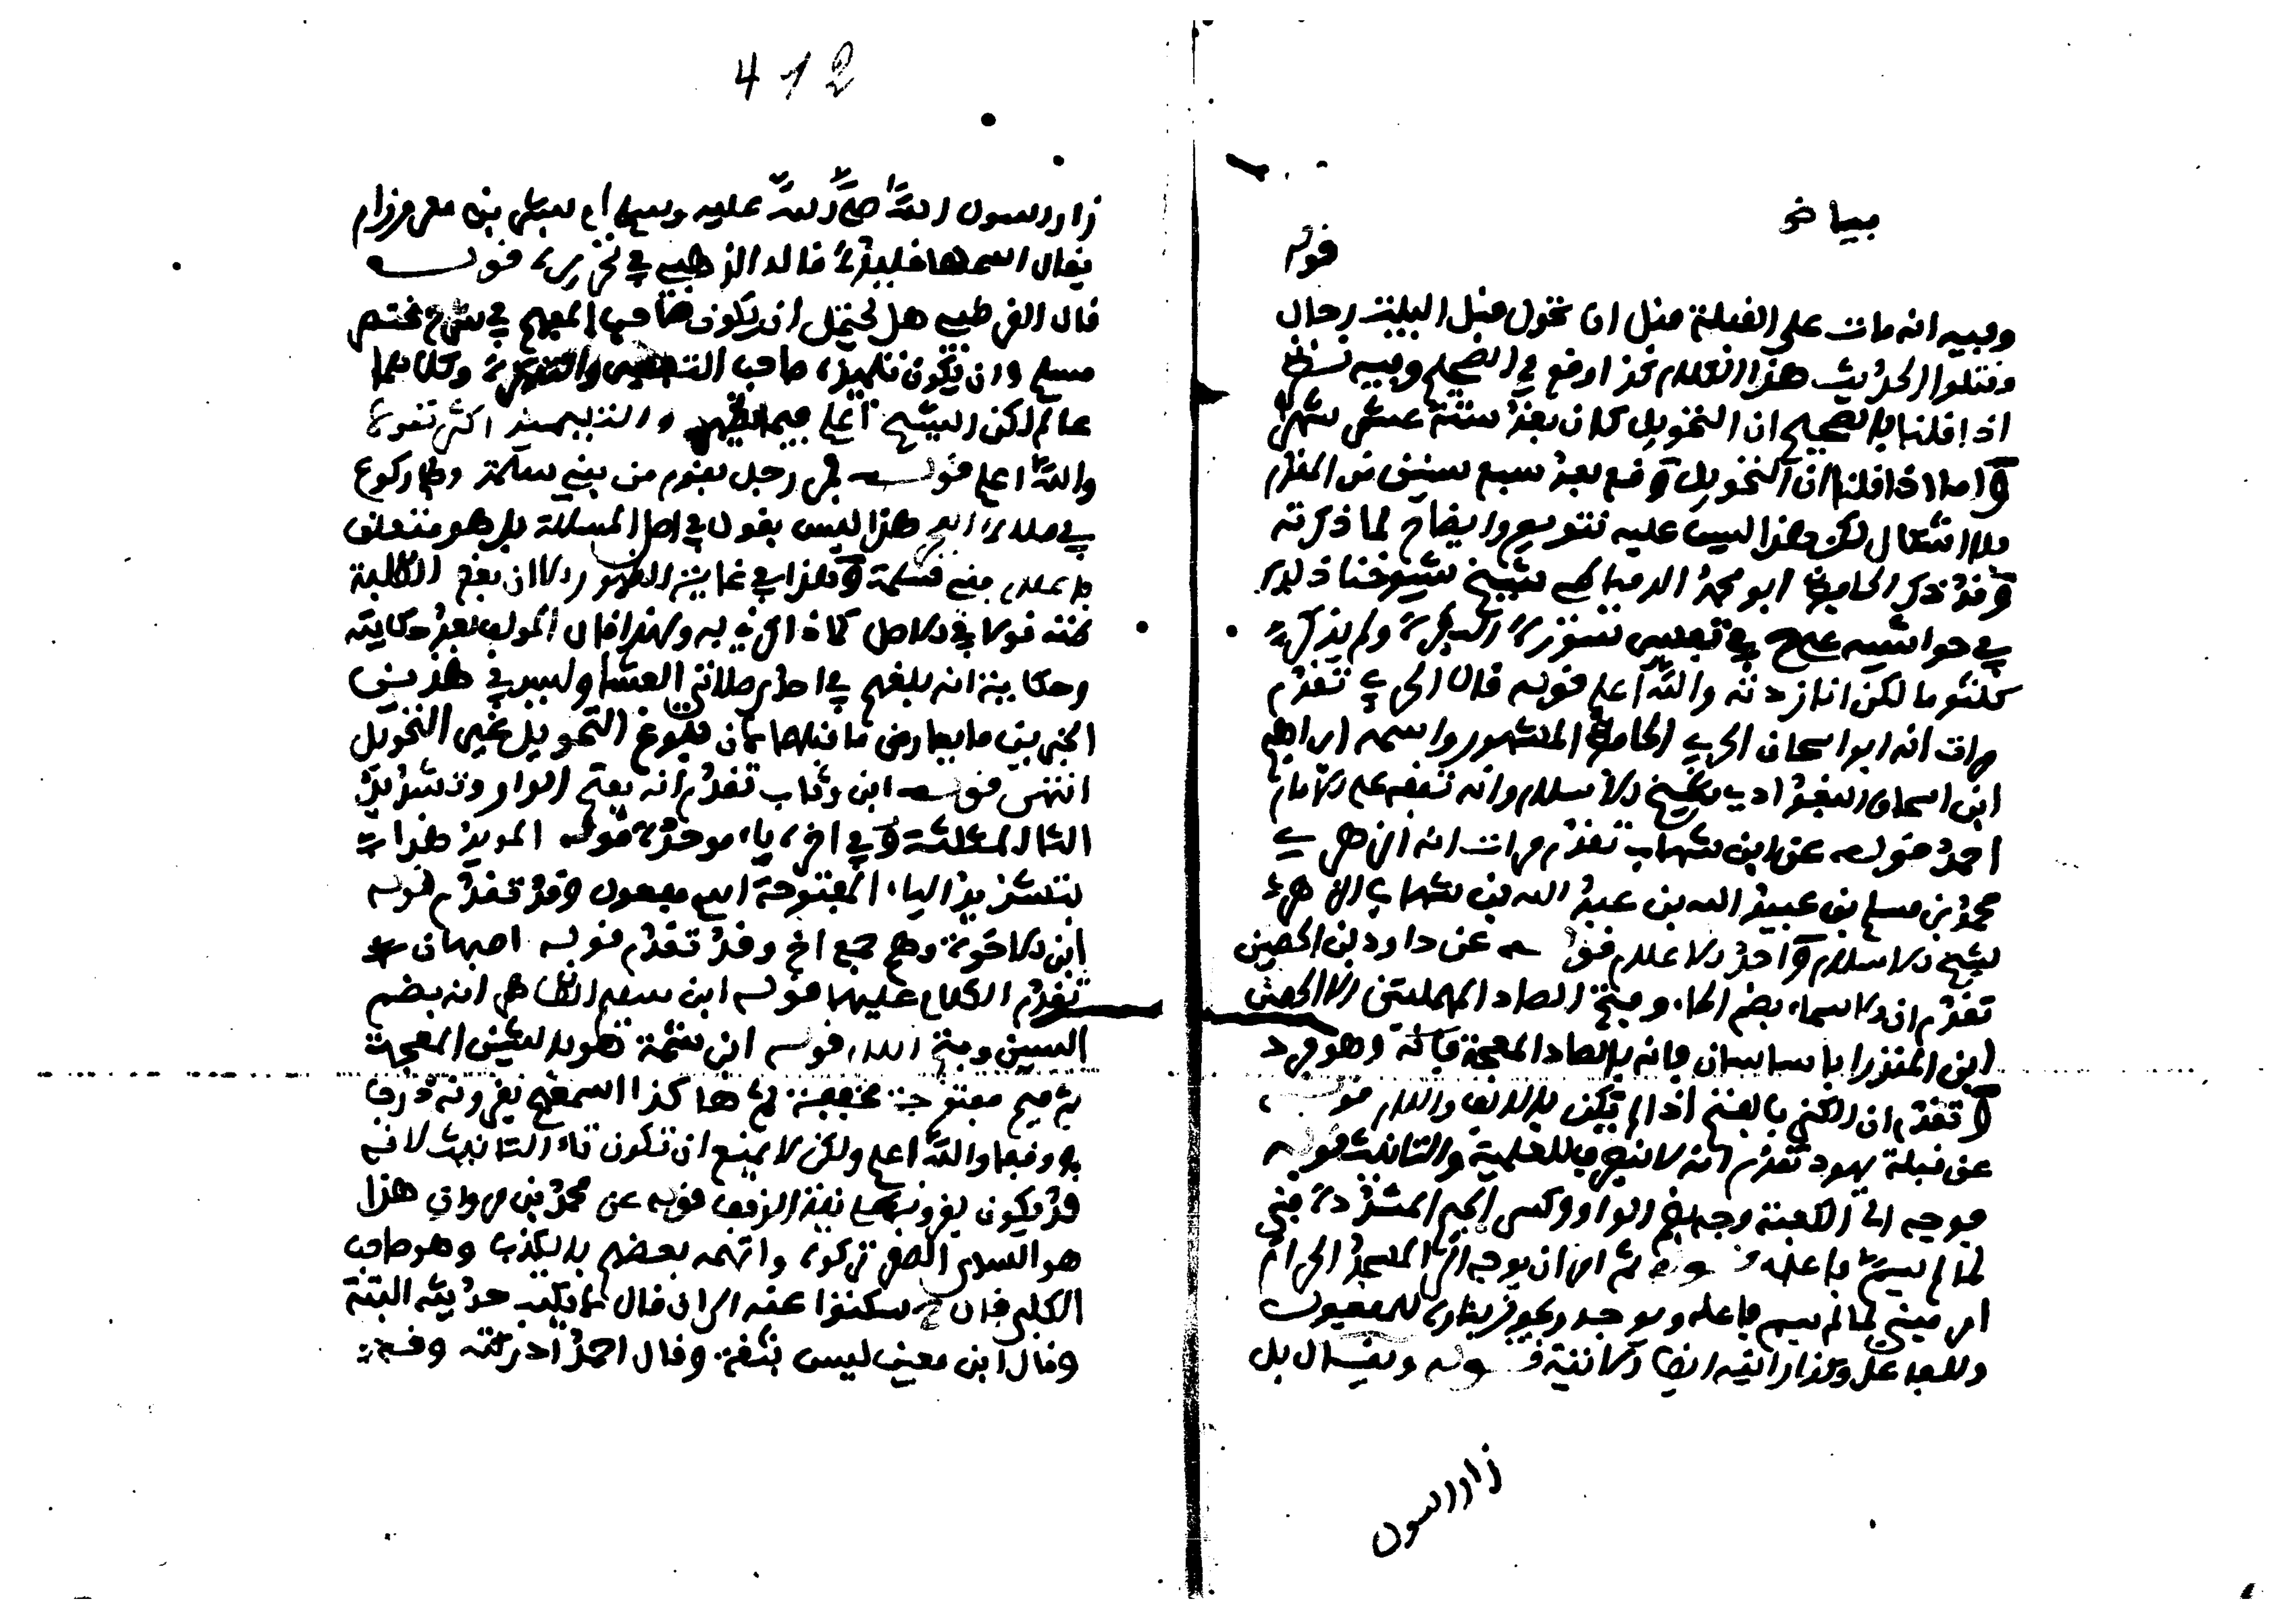 بياض
قوله
وفيه انه مات على القبلة قبل ان تحول قبل البيت رجال
وقتلوا الحديث هذا الكلام كذا وقع في الصحيح وفيه
اذا قلنا بالصحيح ان التحويل كان بعد ستة عشر شهرا
واما اذا قلنا ان التحويل وقع بعد سبع سنين من المقدم
فلا اشكال لكن هذا ليس عليه وايضاح لما ذكرته
وقد ذكر الحافظ ابو محمد الدمياطي شيخ شيوخنا ذلك
في حواشيه على في تفسير ولم يذكر
كلثوما لكن انا زدته والله اعلم قوله قال الحربي تقدم
مرات انه ابو اسحاق الحربي الحافظ المشهور واسمه ابراهيم
ابن اسحاق البغدادي شيخ الاسلام وانه تفقه على الامام
احمد قوله عن ابن شهاب تقدم مرات انه الزهري
محمد بن مسلم بن عبيد الله بن عبد الله بن شهاب الزهري
شيخ الاسلام واحد الاعلام قوله عن داود بن الحصين
تقدم ان الاسماء بضم الحاء وفتح الصاد المهملتين الا الحضين
ابن المنذر ابا ساسان فانه بالضاد المعجمة فانه وهو فرد
وتقدم ان الكنى بالفتح اذا لم تكن بالالف واللام قوله
عن قبلة يهود تقدم انه لا ينصرف للعلمية والتانيث قوله
فوجه الى الكعبة وجه بضم الواو وكسر الجيم المشددة مبني
لما لم يسم فاعله قوله ثم امر ان يوجه الى المسجد الحرام
امر مبني لما لم يسم فاعله ويوجه يجوز بناوه للمفعول
وللفاعل وكذا رايته ايضا الثانية قوله ويقال بل
زار رسول
412
زار رسول الله صلى الله عليه وسلم ام بشر بن معرور
يقال اسمها خليدة قاله الذهبي في تجريده قوله
قال القرطبي هل يحتمل ان يكون صاحب المفهم في شرح مختصر
مسلم وان يكون تلميذه صاحب التفسير والتذكرة وكلاهما
عالم لكن الشيخ اعلم فيما يظهر والتلميذ اكثر تقوى
والله اعلم قوله فمر رجل بقوم من بني سلمة وهم ركوع
في صلاة هذا ليس بقول في اصل المسئلة بل هو متعلق
بني سلمة وهذا في غاية الظهور الا ان بعض الطلبة
ظنه قولا في الاصل كما ذاكرني به ولهذا قال المولف بعد حكايته
وحكاية انه بلغهم في احدى صلاتي العشا وليس في هذين
الخبرين ما يعارض ما قبلهما لان بلوغ التحويل غير التحويل
انتهى قوله ابن وثاب تقدم انه بفتح الواو وتشديد
الثا المثلثة وفي اخره باء موحدة قوله المويد هذا
بتشديد الياء المفتوحة اسم مفعول وقد تقدم قوله
ابن الاخوة وهم جمع اخ وقد تقدم قوله اصبهان
تقدم الكلام عليها قوله ابن سليم الظاهر انه بضم
السين وفتح اللام قوله ابن شمة هو بالشين المعجمة
ثم ميم مفتوحة مخففة ثم ها كذا اسمعهم يقرونه درجا
ووقفا والله اعلم ولكن لا يمنع ان تكون تاء التانيث لانه
قد يكون يقرونها بنية الوقف قوله عن محمد بن مروان هذا
هو السدي الصغير تركوه واتهمه بعضهم بالكذب وهو صاحب
الكلبي قال خ سكتوا عنه الى ان قال لا يكتب حديثه البتة
وقال ابن معين ليس بثقة وقال احمد ادركته وقد